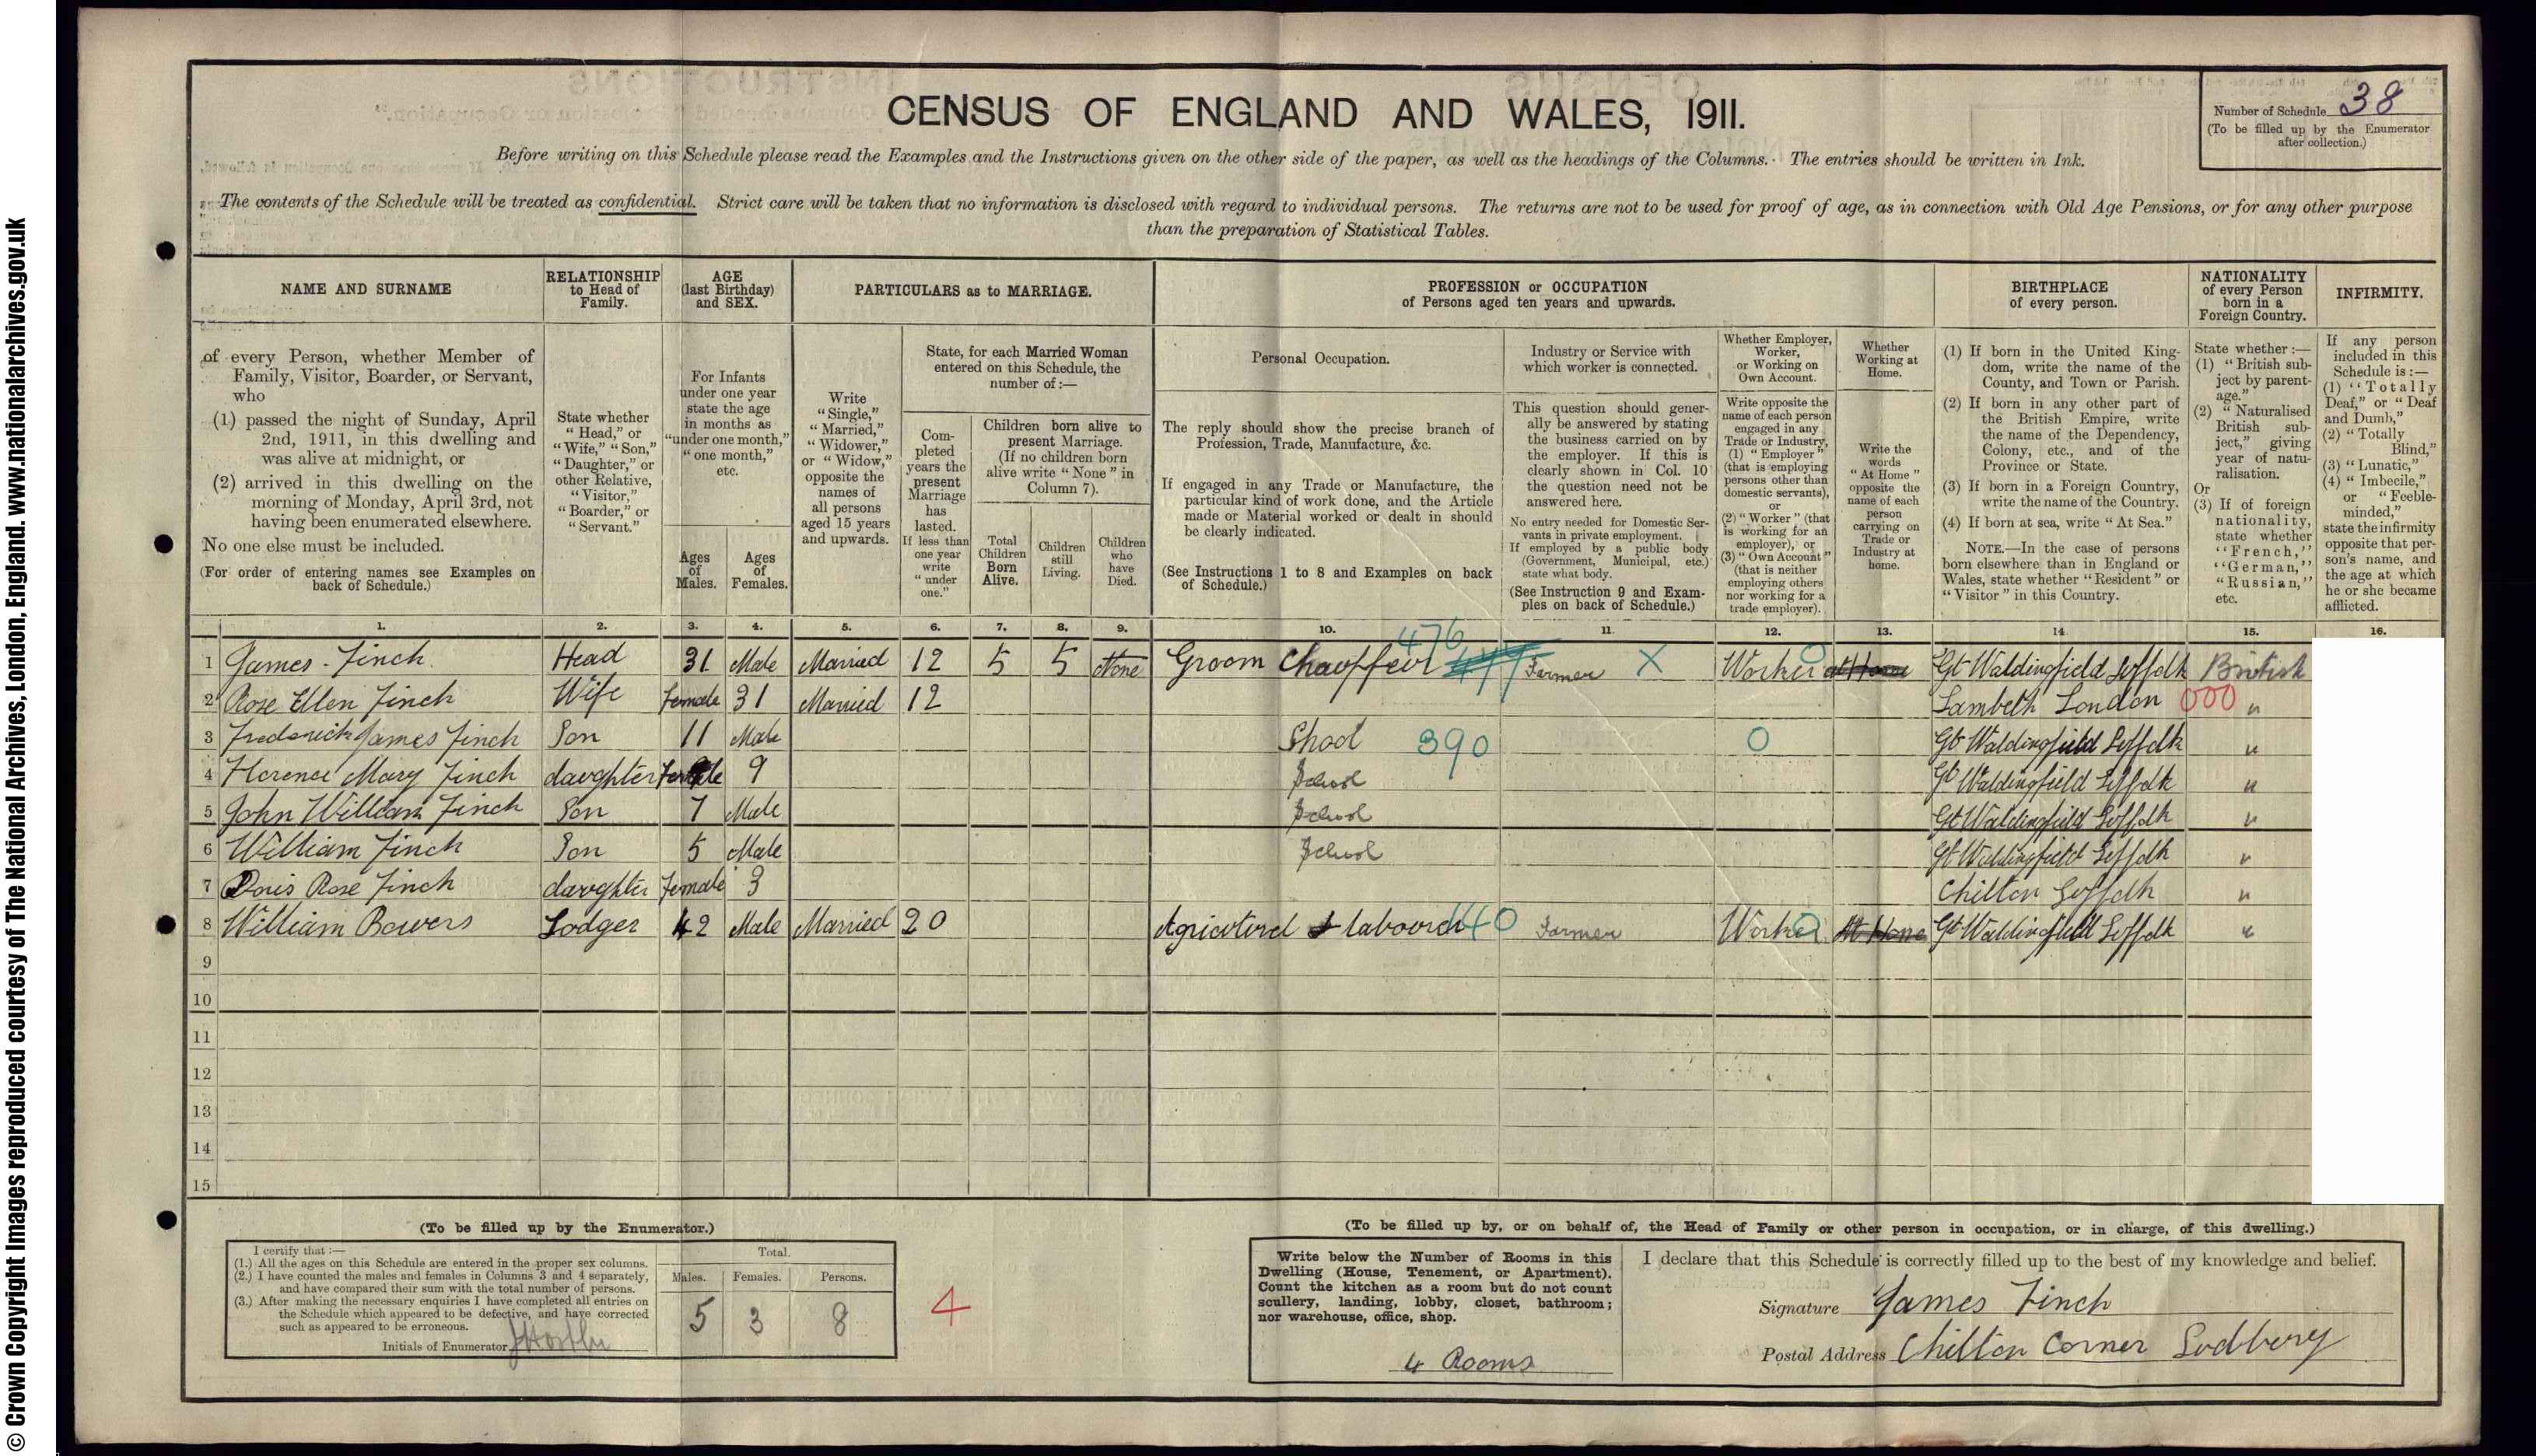 © Crown Copyright Images reproduced courtesy of The National Archives, London, England. www.nationalarchives.gov.uk
CENSUS OF ENGLAND AND WALES, 1911.
Number of Schedule 38
(To be filled up by the Enumerator
after collection.)
Before writing on this Schedule please read the Examples and the Instructions given on the other side of the paper, as well as the headings of the Columns. The entries should be written in Ink.
The contents of the Schedule will be treated as confidential. Strict care will be taken that no information is disclosed with regard to individual persons. The returns are not to be used for proof of age, as in connection with Old Age Pensions, or for any other purpose
than the preparation of Statistical Tables.
NAME AND SURNAME
of every Person, whether Member of
Family, Visitor, Boarder, or Servant,
who
(1) passed the night of Sunday, April
2nd, 1911, in this dwelling and
was alive at midnight, or
(2) arrived in this dwelling on the
morning of Monday, April 3rd, not
having been enumerated elsewhere.
No one else must be included.
(For order of entering names see Examples on
back of Schedule.)
RELATIONSHIP
to Head of
Family.
State whether
"Head," or
"Wife," "Son,"
"Daughter," or
other Relative,
"Visitor,"
"Boarder," or
"Servant."
AGE
(last Birthday)
and SEX.
For Infants
under one year
state the age
in months as
"under one month,"
"one month,"
etc.
Ages
of
Males.
Ages
of
Females.
PARTICULARS as to MARRIAGE.
Write
"Single,"
"Married,"
"Widower,"
or "Widow,"
opposite the
names of
all persons
aged 15 years
and upwards.
State, for each Married Woman
entered on this Schedule, the
number of:—
Com-
pleted
years the
present
Marriage
has
lasted.
If less than
one year
write
"under
one."
Children born alive to
present Marriage.
(If no children born
alive write "None" in
Column 7).
Total
Children
Born
Alive.
Children
still
Living.
Children
who
have
Died.
PROFESSION or OCCUPATION
of Persons aged ten years and upwards.
Personal Occupation.
The reply should show the precise branch of
Profession, Trade, Manufacture, &c.
If engaged in any Trade or Manufacture, the
particular kind of work done, and the Article
made or Material worked or dealt in should
be clearly indicated.
(See Instructions 1 to 8 and Examples on back
of Schedule.)
Industry or Service with
which worker is connected.
This question should gener-
ally be answered by stating
the business carried on by
the employer. If this is
clearly shown in Col. 10
the question need not be
answered here.
No entry needed for Domestic Ser-
vants in private employment.
If employed by a public body
(Government, Municipal, etc.)
state what body.
(See Instruction 9 and Exam-
ples on back of Schedule.)
Whether Employer,
Worker,
or Working on
Own Account.
Write opposite the
name of each person
engaged in any
Trade or Industry,
(1) "Employer"
(that is employing
persons other than
domestic servants),
or
(2) "Worker" (that
is working for an
employer), or
(3) "Own Account"
(that is neither
employing others
nor working for a
trade employer).
Whether
Working at
Home.
Write the
words
"At Home"
opposite the
name of each
person
carrying on
Trade or
Industry at
home.
BIRTHPLACE
of every person.
(1) If born in the United King-
dom, write the name of the
County, and Town or Parish.
(2) If born in any other part of
the British Empire, write
the name of the Dependency,
Colony, etc., and of the
Province or State.
(3) If born in a Foreign Country,
write the name of the Country.
(4) If born at sea, write "At Sea."
NOTE.—In the case of persons
born elsewhere than in England or
Wales, state whether "Resident" or
"Visitor" in this Country.
NATIONALITY
of every Person
born in a
Foreign Country.
State whether:—
(1) "British sub-
ject by parent-
age."
(2) "Naturalised
British sub-
ject," giving
year of natu-
ralisation.
Or
(3) If of foreign
nationality,
state whether
"French,"
"German,"
"Russian,"
etc.
INFIRMITY.
If any person
included in this
Schedule is:—
(1) "Totally
Deaf," or "Deaf
and Dumb,"
(2) "Totally
Blind,"
(3) "Lunatic,"
(4) "Imbecile,"
or "Feeble-
minded,"
state the infirmity
opposite that per-
son's name, and
the age at which
he or she became
afflicted.
1. 2. 3. 4. 5. 6. 7. 8. 9. 10. 11. 12. 13. 14. 15. 16.
1 James Finch Head 31 Male Married 12 5 5 None Groom Chauffeur 476 Farmer X Worker 0 At Home Gt Waldingfield Soffolk British
2 Rose Ellen Finch Wife Female 31 Married 12 Lambeth London 000 "
3 Frederick James Finch Son 11 Male Shool 390 0 Gt Waldingfield Soffolk "
4 Florence Mary Finch daughter Female 9 School Gt Waldingfield Soffolk "
5 John William Finch Son 7 Male School Gt Waldingfield Soffolk "
6 William Finch Son 5 Male School Gt Waldingfield Soffolk "
7 Doris Rose Finch daughter Female 3 Chilton Soffolk "
8 William Bowers Lodger 42 Male Married 20 Agricoturel labourer 140 Farmer Worker 0 At Home Gt Waldingfield Soffolk "
9
10
11
12
13
14
15
(To be filled up by the Enumerator.)
I certify that:—
(1.) All the ages on this Schedule are entered in the proper sex columns.
(2.) I have counted the males and females in Columns 3 and 4 separately,
and have compared their sum with the total number of persons.
(3.) After making the necessary enquiries I have completed all entries on
the Schedule which appeared to be defective, and have corrected
such as appeared to be erroneous.
Initials of Enumerator
Total.
Males. Females. Persons.
5 3 8
4
(To be filled up by, or on behalf of, the Head of Family or other person in occupation, or in charge, of this dwelling.)
Write below the Number of Rooms in this
Dwelling (House, Tenement, or Apartment).
Count the kitchen as a room but do not count
scullery, landing, lobby, closet, bathroom;
nor warehouse, office, shop.
4 Rooms
I declare that this Schedule is correctly filled up to the best of my knowledge and belief.
Signature James Finch
Postal Address Chilton Corner Sudbory